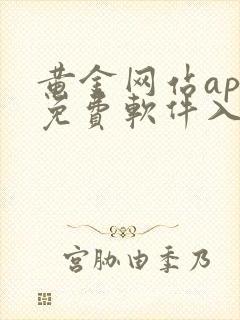 黄金网站ap
免費軟件入
宮胁由季乃